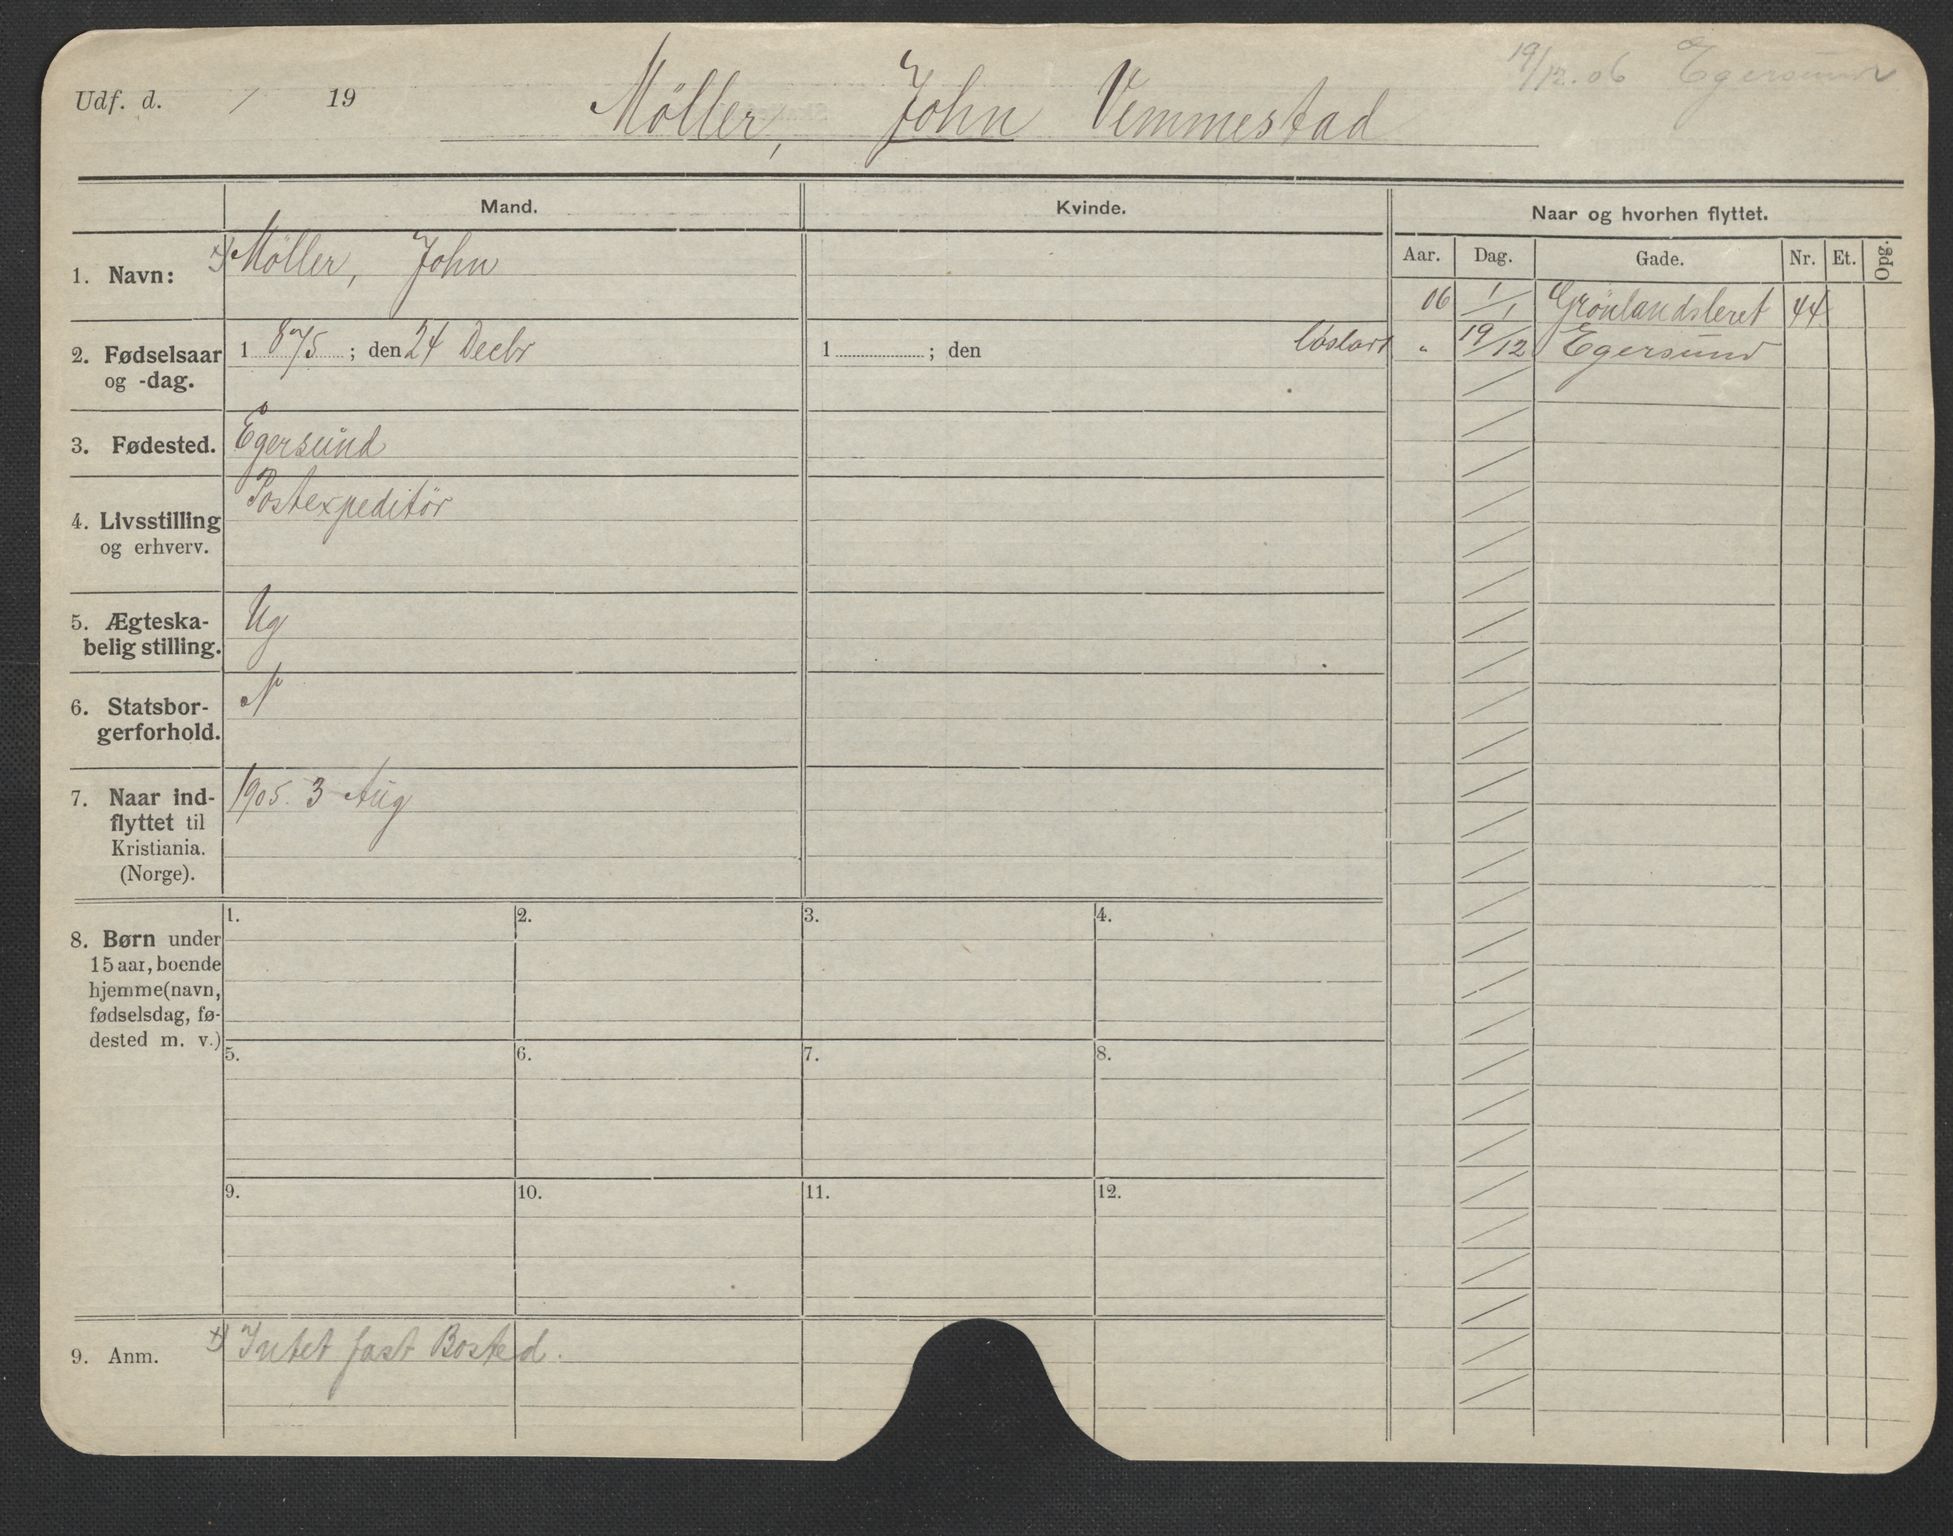 19/12.06 Egersund
Udf. d. / 19
Møller, John Vemmestad
Mand.
Kvinde.
Naar og hvorhen flyttet.
Aar. Dag. Gade. Nr. Et. Opg.
1. Navn: x) Møller, John
06 1/1 Grönlandsleret 44
2. Fødselsaar og -dag. 1 875 ; den 24 Decbr
1 ; den
" 19/12 Egersund
3. Fødested. Egersund
4. Livsstilling og erhverv. Postexpeditør
5. Ægteska-
belig stilling. Ug
6. Statsbor-
gerforhold. N
7. Naar ind-
flyttet til
Kristiania.
(Norge).
1905. 3 Aug
8. Børn under
15 aar, boende
hjemme (navn,
fødselsdag, fø-
dested m. v.)
1. 2. 3. 4.
5. 6. 7. 8.
9. 10. 11. 12.
9. Anm. x) Intet fast Bosted.